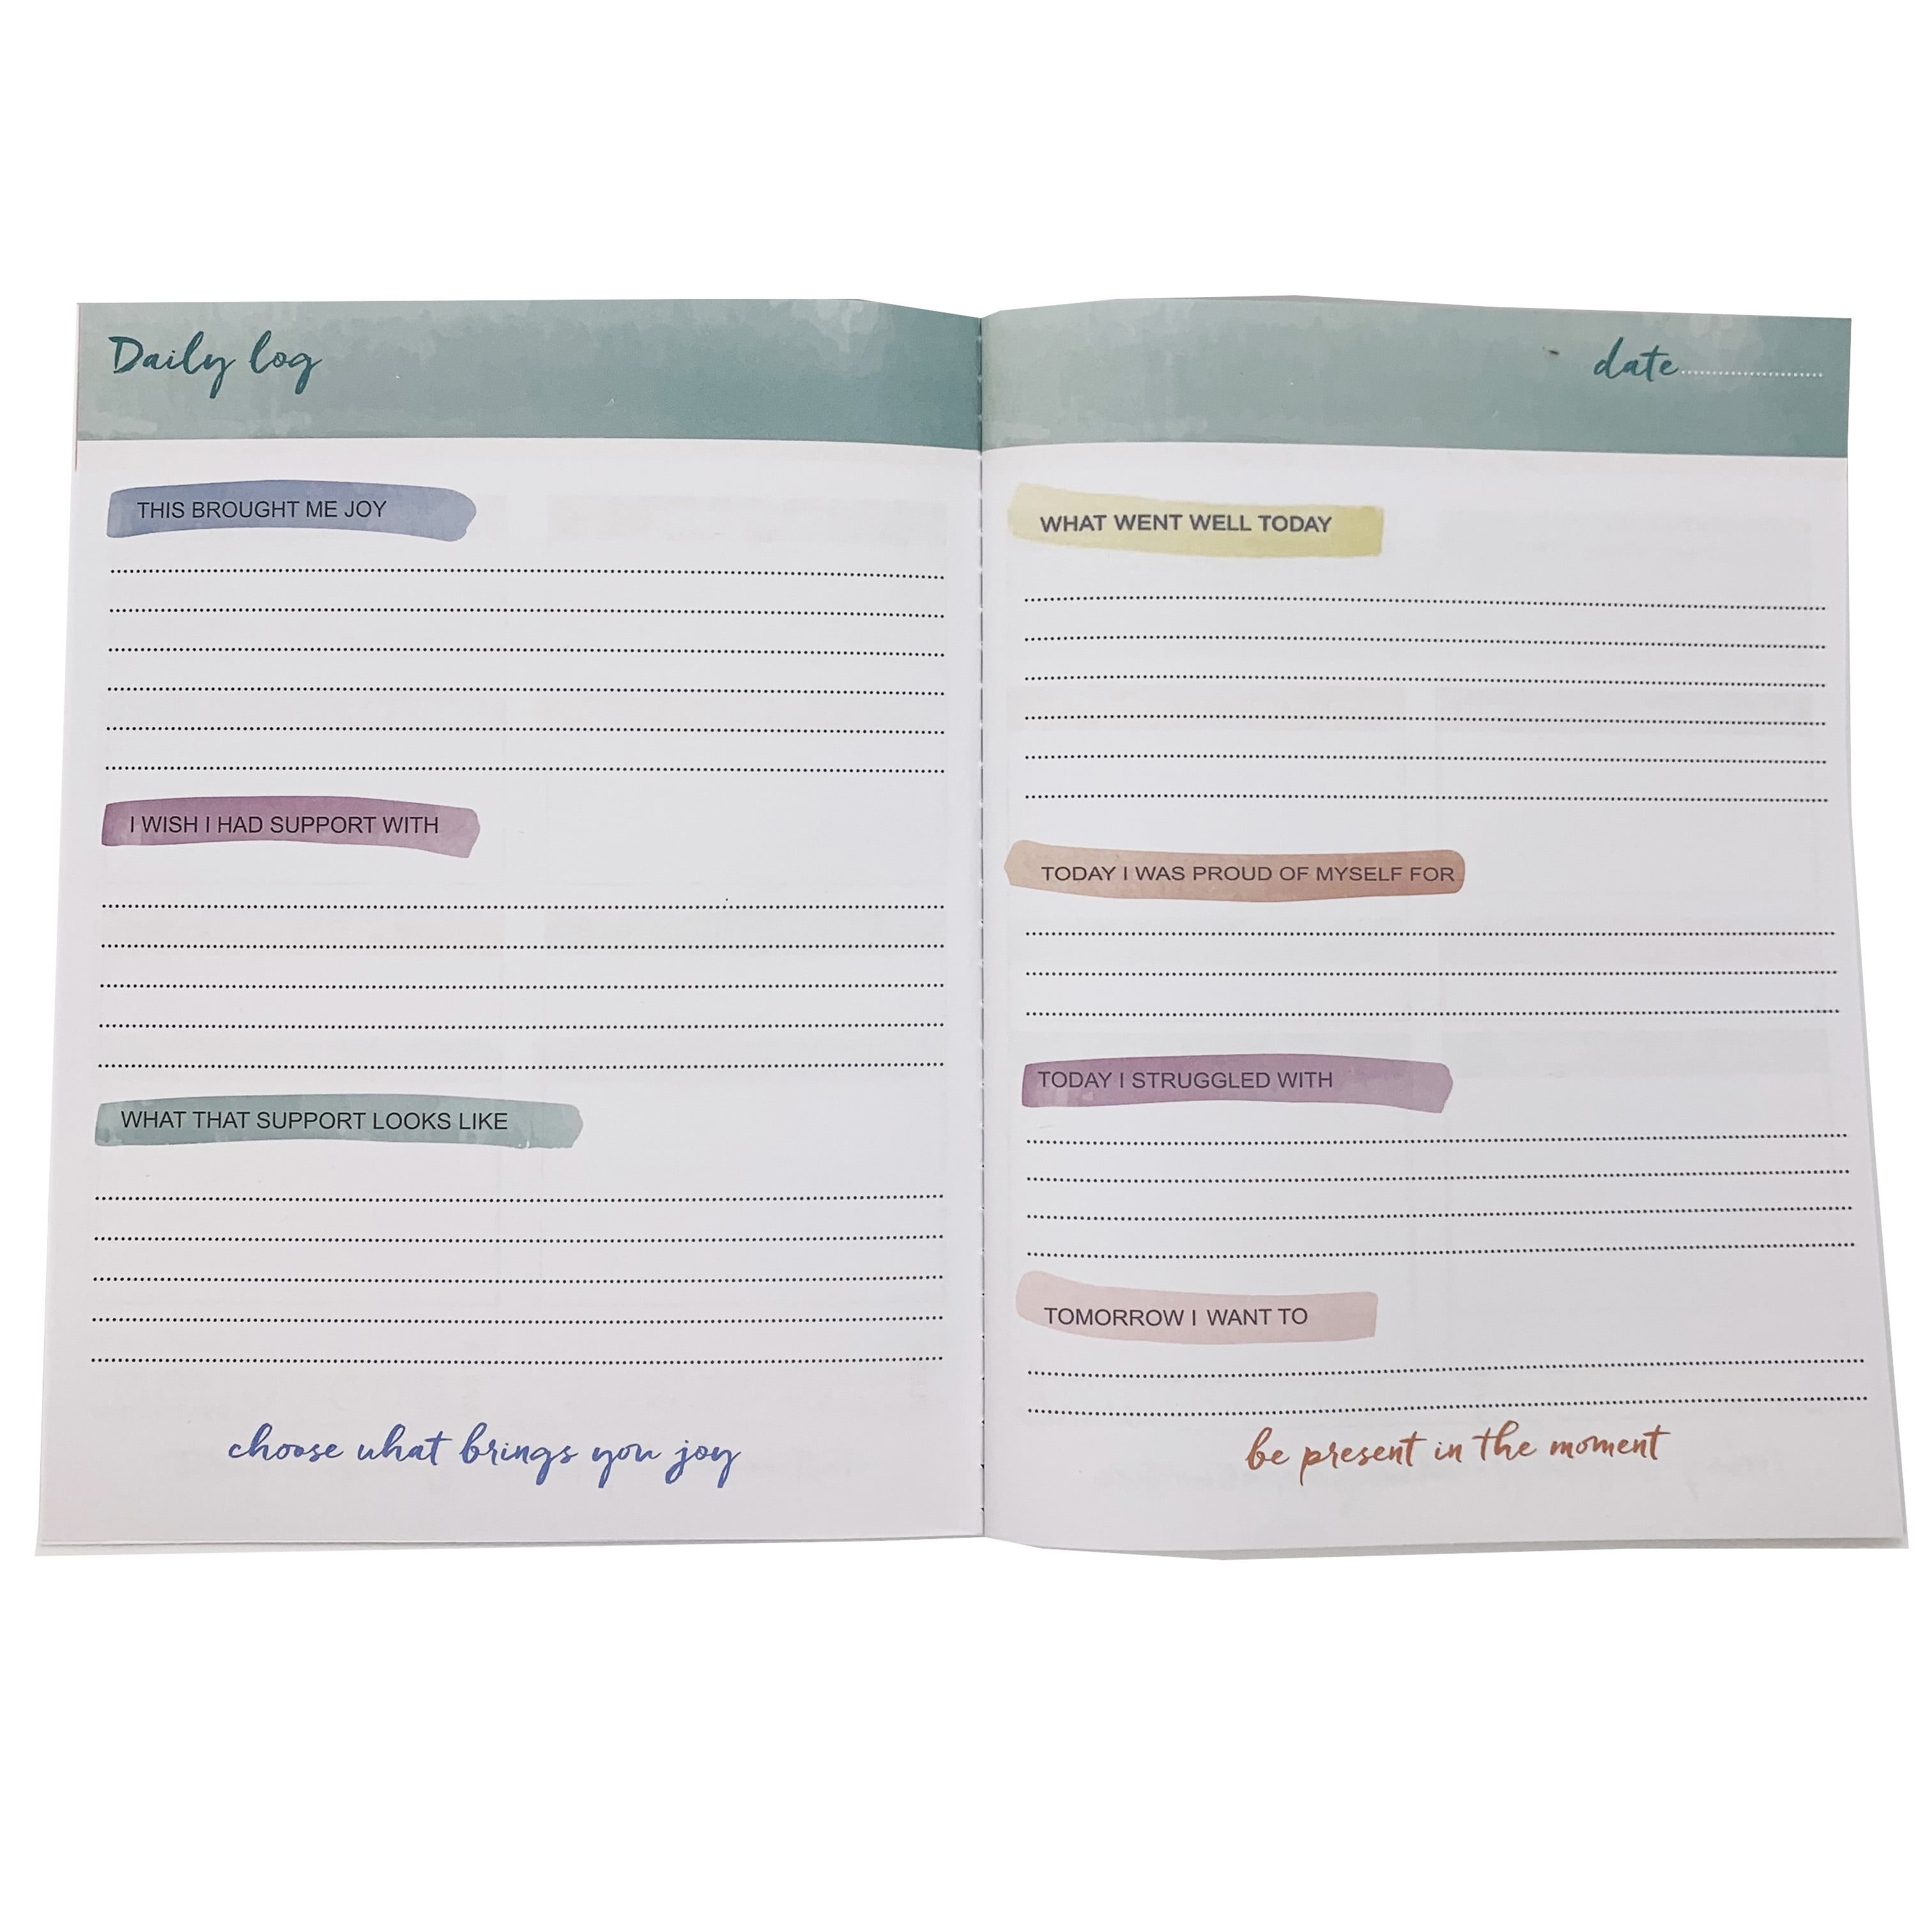 Daily log
THIS BROUGHT ME JOY
I WISH I HAD SUPPORT WITH
WHAT THAT SUPPORT LOOKS LIKE
choose what brings you joy
date
WHAT WENT WELL TODAY
TODAY I WAS PROUD OF MYSELF FOR
TODAY I STRUGGLED WITH
TOMORROW I WANT TO
be present in the moment